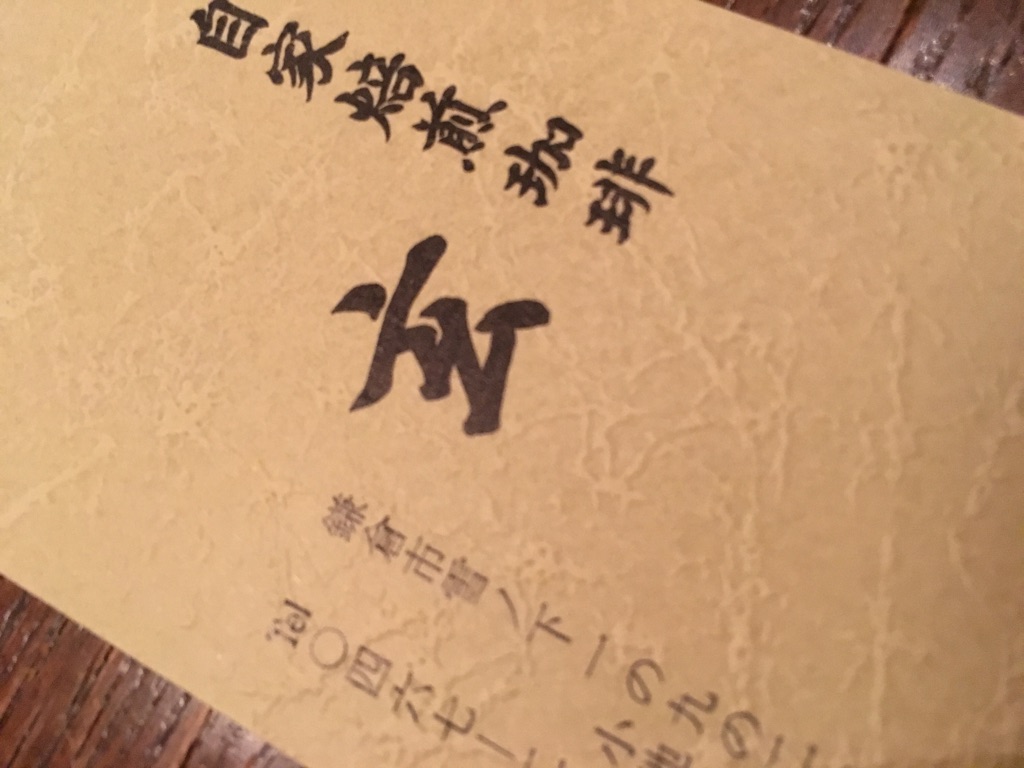 自家焙煎珈琲
玄
鎌倉市雪ノ下一の九の二
小
Tel 〇四六七ー